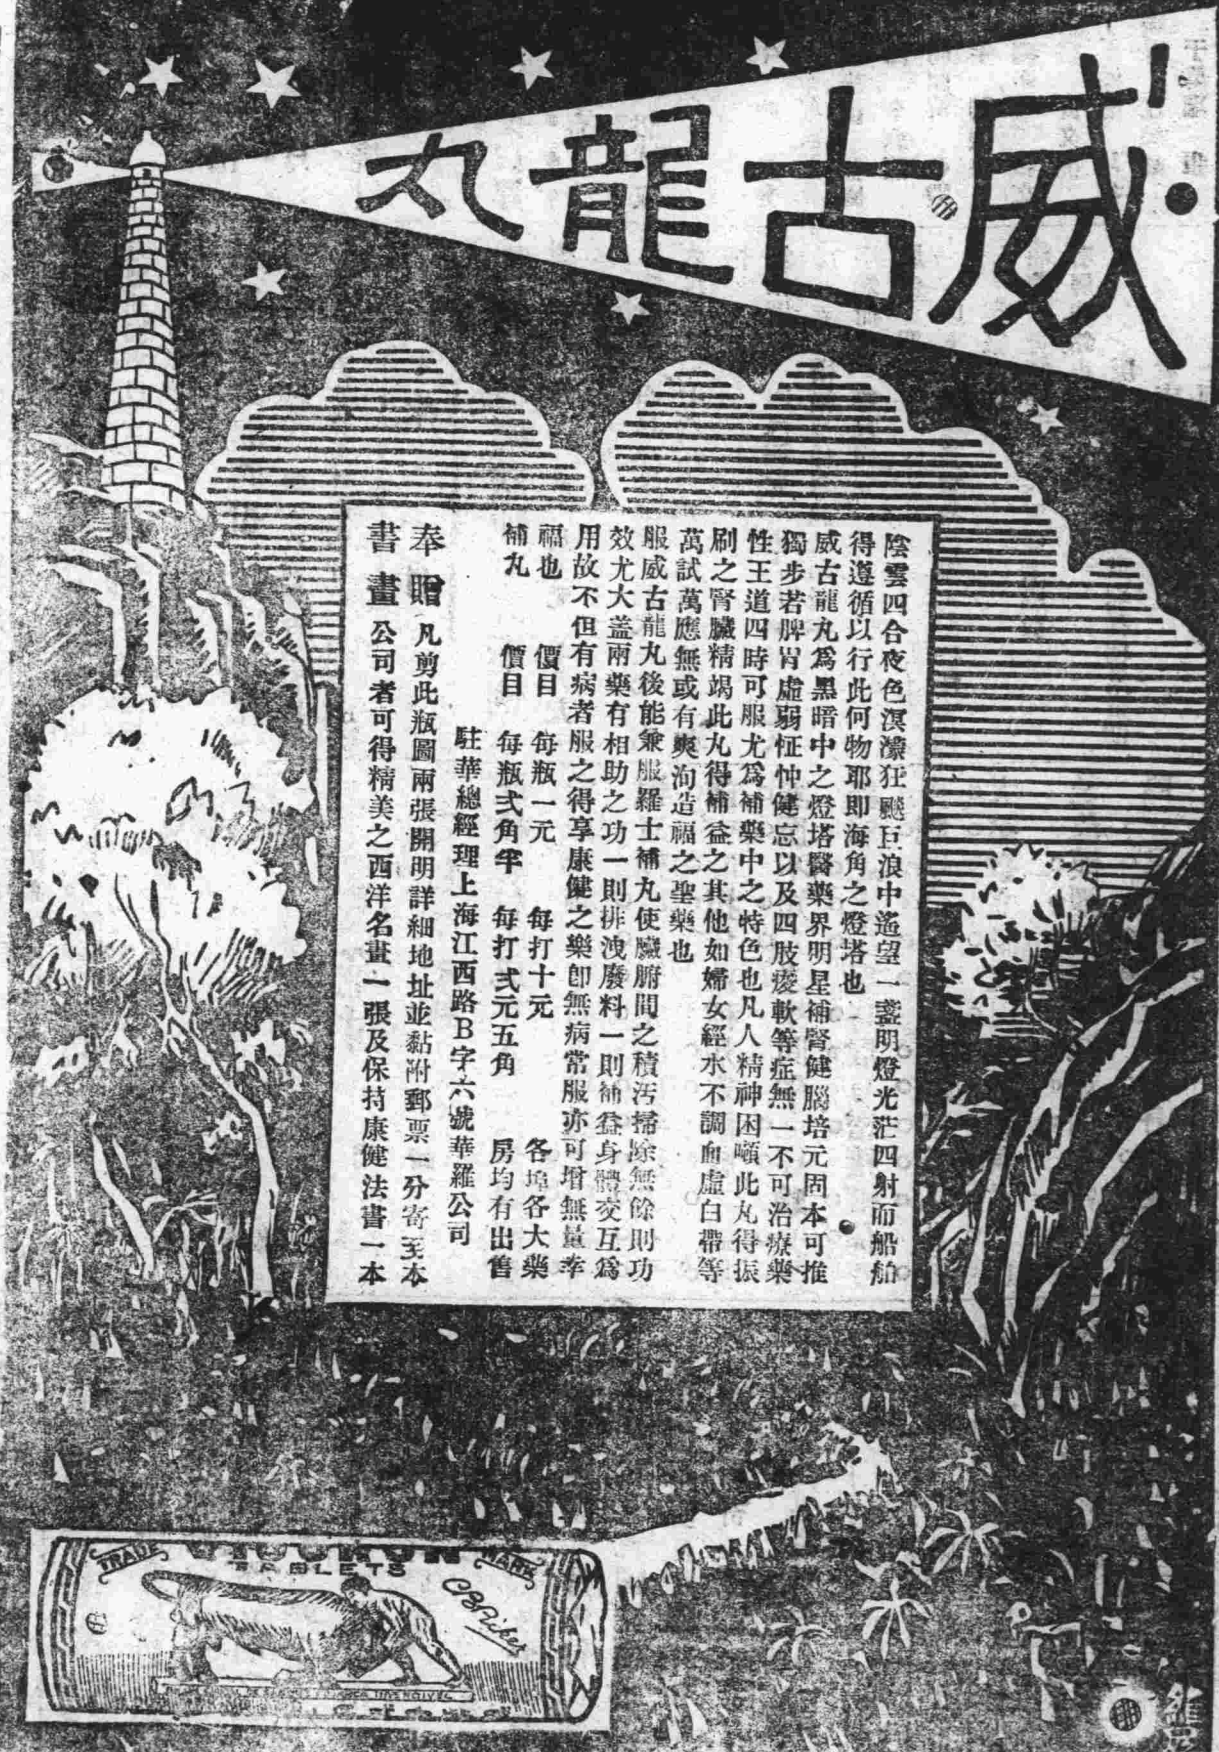 威古龍丸
陰雲四合夜色溟濛狂颷巨浪中遙望一盞明燈光茫四射而船舶
得遵循以行此何物耶即海角之燈塔也
威古龍丸爲黑暗中之燈塔醫藥界明星補腎健腦培元固本可推
獨步若脾胃虛弱怔忡健忘以及四肢痠軟等症無一不可治療藥
性王道四時可服尤爲補藥中之特色也凡人精神困頓此丸得振
刷之腎臟精竭此丸得補益之其他如婦女經水不調血虛白帶等
萬試萬應無或有爽洵造福之聖藥也
服威古龍丸後能兼服羅士補丸使臟腑間之積污掃除無餘則功
效尤大蓋兩藥有相助之功一則排洩廢料一則補益身體交互爲
用故不但有病者服之得享康健之樂卽無病常服亦可增無量幸
福也 價目 每瓶一元 每打十元 各埠各大藥
補丸 價目 每瓶弍角半 每打弍元五角 房均有出售
駐華總經理上海江西路B字六號華羅公司
奉贈 凡剪此瓶圖兩張開明詳細地址並黏附郵票一分寄至本
書畫 公司者可得精美之西洋名畫一張及保持康健法書一本
TRADE MARK
TABLETS